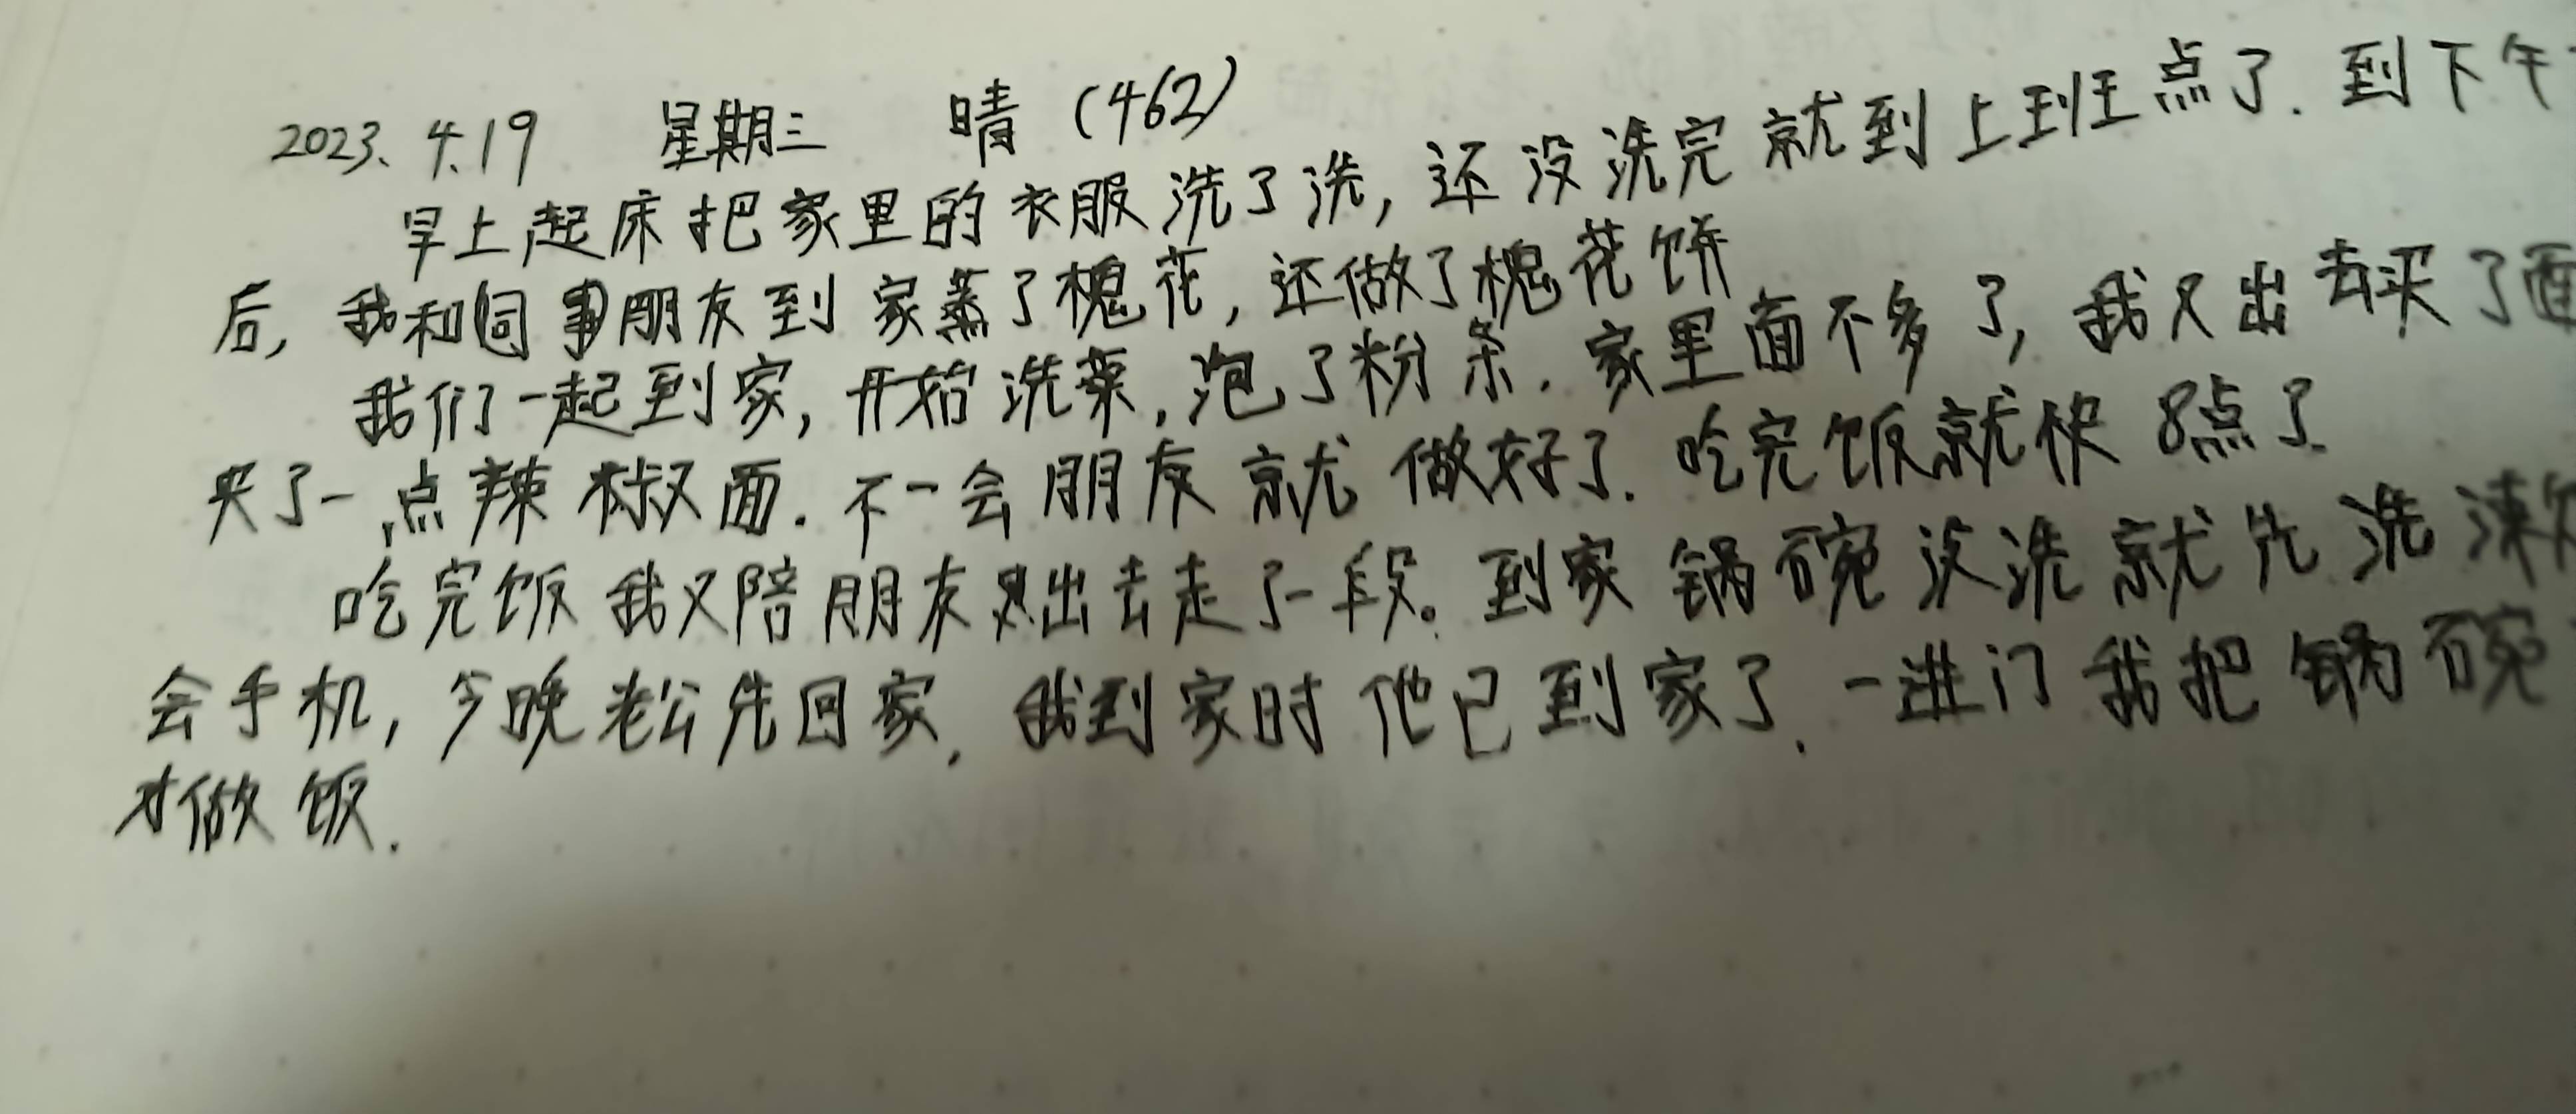 2023.4.19 星期三 晴 (462)
早上起床把家里的衣服洗了洗, 还没洗完就到上班点了. 到下午
后, 我和同事朋友到家蒸了槐花, 还做了槐花饼
我们一起到家, 开始洗菜, 泡了粉条. 家里面不多了, 我又出去买了面
买了一点辣椒面. 不一会朋友就做好了. 吃完饭就快8点了.
吃完饭我又陪朋友出去走了一段。到家锅碗没洗就先洗漱
会手机, 今晚老公先回家. 我到家时他已到家了. 一进门我把锅碗
才做饭.